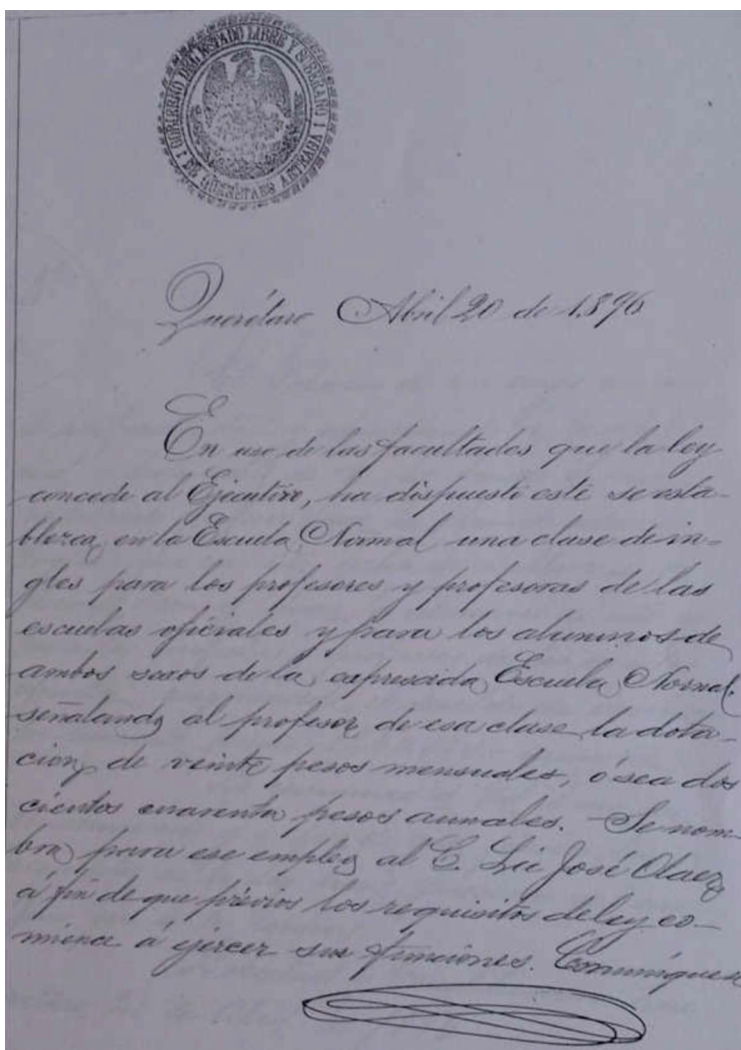 GOBIERNO DEL ESTADO LIBRE Y SOBERANO
DE QUERETARO ARTEAGA
Querétaro Abril 20 de 1896
En uso de las facultades que la ley
concede al Ejecutivo, ha dispuesto este se esta-
blezca en la Escuela Normal una clase de in-
gles para los profesores y profesoras de las
escuelas oficiales y para los alumnos de
ambos sexos de la expresada Escuela Normal,
señalando al profesor de esa clase la dota-
cion de veinte pesos mensuales, ó sea dos
cientos cuarenta pesos anuales. - Se nom-
bra para ese empleo al C. Lic José Olaez
á fin de que prévios los requisitos de ley co-
mience á ejercer sus funciones. Comuníquese